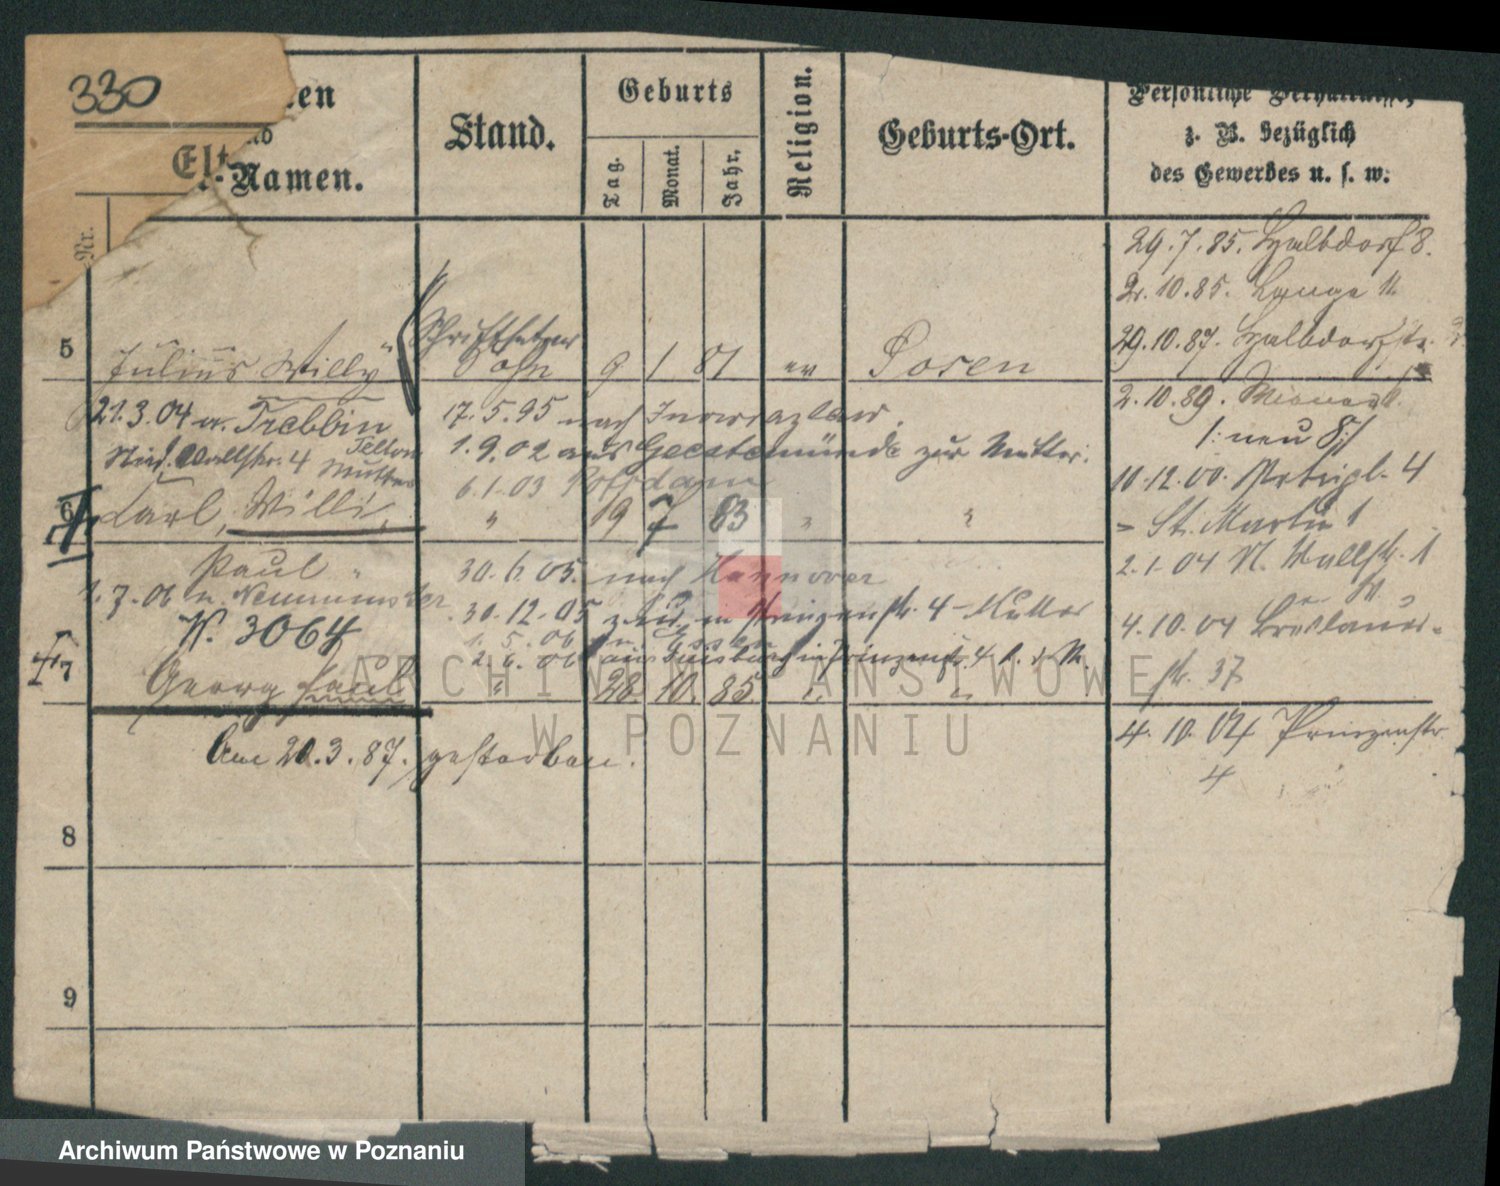 330
en
nd
Elt
-Namen.
Nr.
Stand.
Geburts
Tag.
Monat.
Jahr.
Religion.
Geburts-Ort.
Persönliche Verhältnisse,
z. B. bezüglich
des Gewerbes u. s. w.
29.7.85. Halbdorf 8.
2.10.85. Lange
29.10.87. Halbdorfstr.
5
Schriftsetzer
Julius Willy
Sohn
9 1 81
ev
Posen
21.3.04 n. Trebbin
Teltow
17.5.95 nach Inowrazlaw.
2.10.89.
Wallstr. 4
Mutter
1.9.02 aus Geestemünde zur Mutter.
/: neu 8 :/
6.1.03 Potsdam
10.12.00. 4
6
Carl, Willi,
"
19 7 83
"
"
= St. Martin
Paul
30.6.05. nach Hannover
2.1.04 N. Wallstr. 1
1.7.06 n. Neumünster
30.12.05 Prinzenstr. 4 - Mutter
N. 3064
4.10.04 Breslauer-
str. 37
2.6.06 aus Duisburg in Prinzenstr. 4 b. d. M.
7
Georg Paul
"
28. 10. 85.
"
"
4.10.04 Prinzenstr
4
Am 20.3.87. gestorben.
8
9
ARCHIWUM PAŃSTWOWE
W POZNANIU
Archiwum Państwowe w Poznaniu